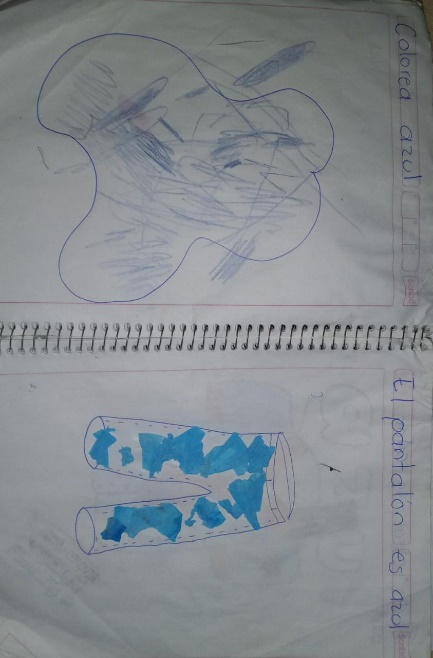 Colorea azul
El pantalón es azul